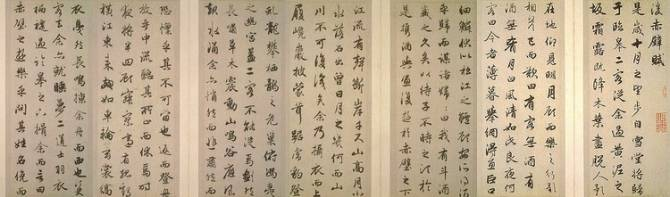 後赤壁賦
是歲十月之望步自雪堂將歸
于臨皋二客從余過黃泥之
坂霜露既降木葉盡脫人影
在地仰見明月顧而樂之行歌
相答已而歎曰有客無酒有
酒無肴月白風清如此良夜何
客曰今者薄暮舉網得魚巨口
細鱗狀如松江之鱸顧安所得酒
乎歸而謀諸婦婦曰我有斗酒
藏之久矣以待子不時之需於
是攜酒與魚復遊於赤壁之下
江流有聲斷岸千尺山高月小
水落石出曾日月之幾何而山
川不可復識矣余乃攝衣而上
履巉巖披蒙茸踞虎豹登
虬龍攀棲鶻之危巢俯馮夷
之幽宮蓋二客不能從焉劃然
長嘯草木震動山鳴谷應風起
水涌余亦悄然而悲肅然而
恐凜乎其不可留也返而登舟
放乎中流聽其所止而休焉時
夜將半四顧寂寥適有孤鶴
橫江東來翅如車輪玄裳縞
衣戛然長鳴掠余舟而西也須臾
客去余亦就睡夢一道士羽衣
翩僊過臨皋之下揖余而言曰
赤壁之遊樂乎問其姓名俛而